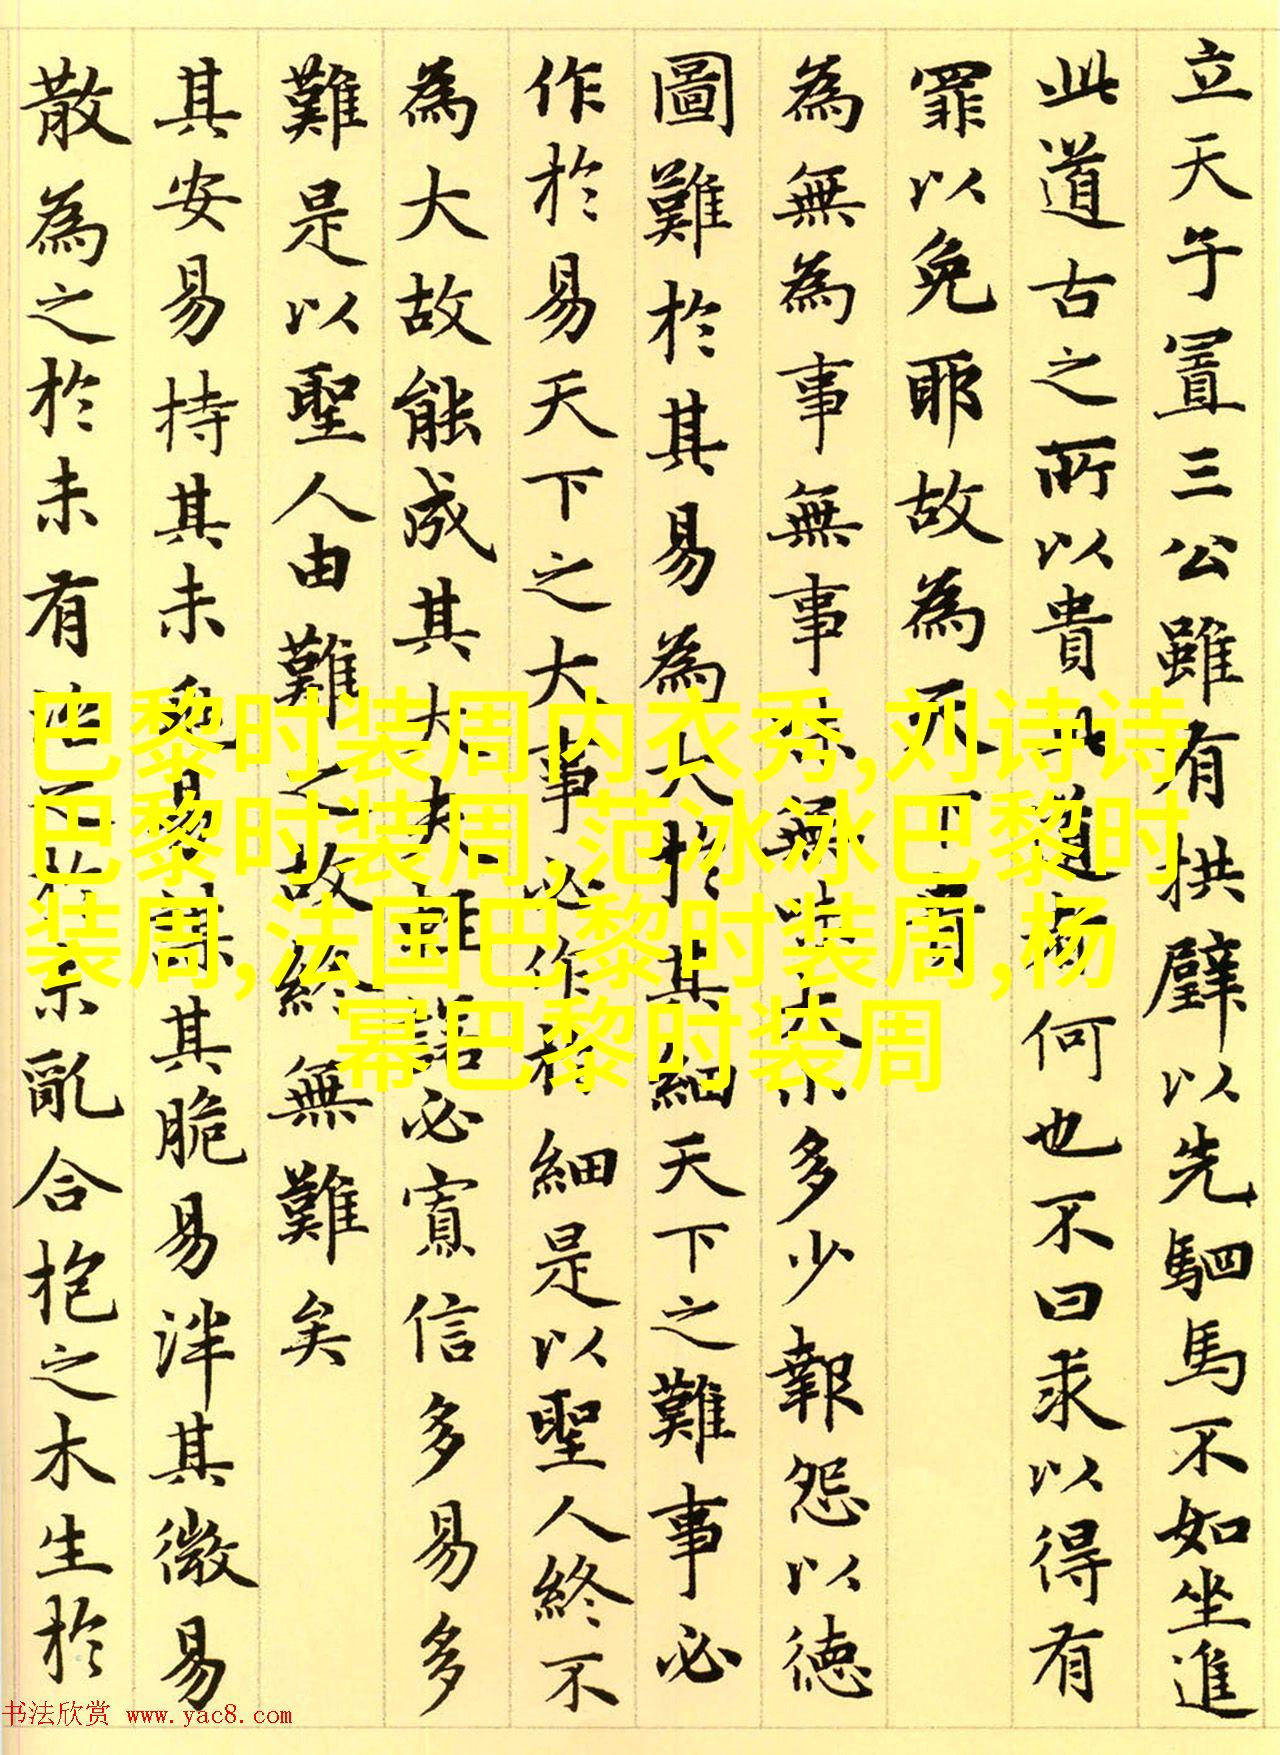 立天子置三公雖有拱璧以先駟馬不如坐進
此道古之所以貴此道者何也不曰求以得有
罪以免耶故為天下貴
為無為事無事味無味大小多少報怨以德
圖難於其易為大於其細天下之難事必
作於易天下之大事必作於細是以聖人終不
為大故能成其大夫輕諾必寡信多易多
難是以聖人由難之故終無難矣
其安易持其未兆易謀其脆易泮其微易
散為之於未有治之於未亂合抱之木生於
巴黎时装周内衣秀,刘诗诗
巴黎时装周,范冰冰巴黎时
装周,法国巴黎时装周,杨
幂巴黎时装周
书法欣赏 www.yac8.com